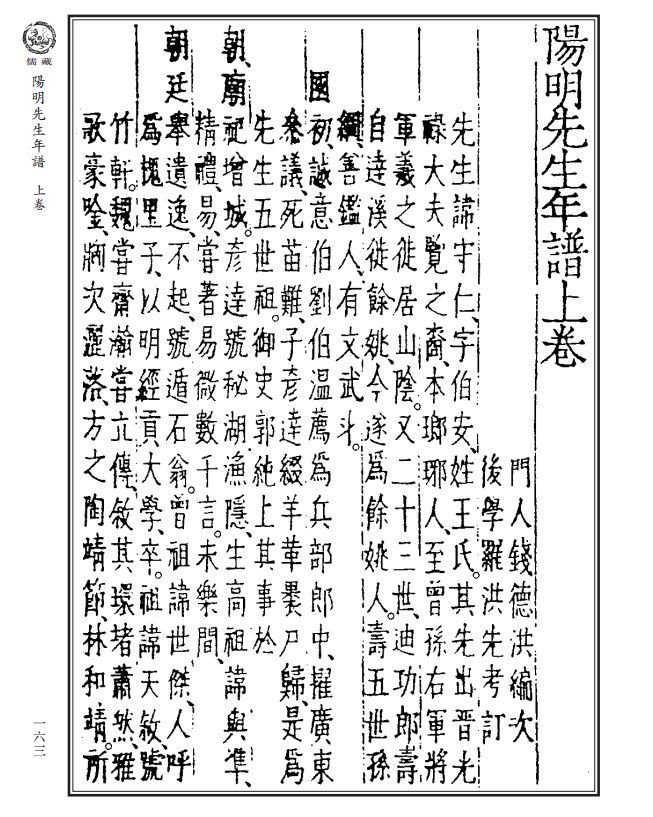 儒藏
陽明先生年譜 上卷
一六三
陽明先生年譜上卷
門人錢德洪編次
後學羅洪先考訂
先生諱守仁、字伯安、姓王氏。其先出晉光
祿大夫覽之裔、本瑯琊人、至曾孫右軍將
軍羲之徙居山陰。又二十三世、迪功郎壽
自達溪徙餘姚、今遂爲餘姚人。壽五世孫
綱、善鑑人、有文武才。
國初、誠意伯劉伯溫薦爲兵部郎中、擢廣東
參議、死苗難、子彥達綴羊革裹尸歸、是爲
先生五世祖。御史郭純上其事於
朝、廟祀增城。彥達號秘湖漁隱、生高祖諱與準、
精禮、易、嘗著易微數千言。未樂間、
朝廷舉遺逸、不起、號遁石翁。曾祖諱世傑、人呼
爲槐里子、以明經貢大學、卒。祖諱天敘、號
竹軒。魏嘗齋瀚嘗立傳、敘其環堵蕭然、雅
歌豪吟、胸次灑落、方之陶靖節、林和靖。所